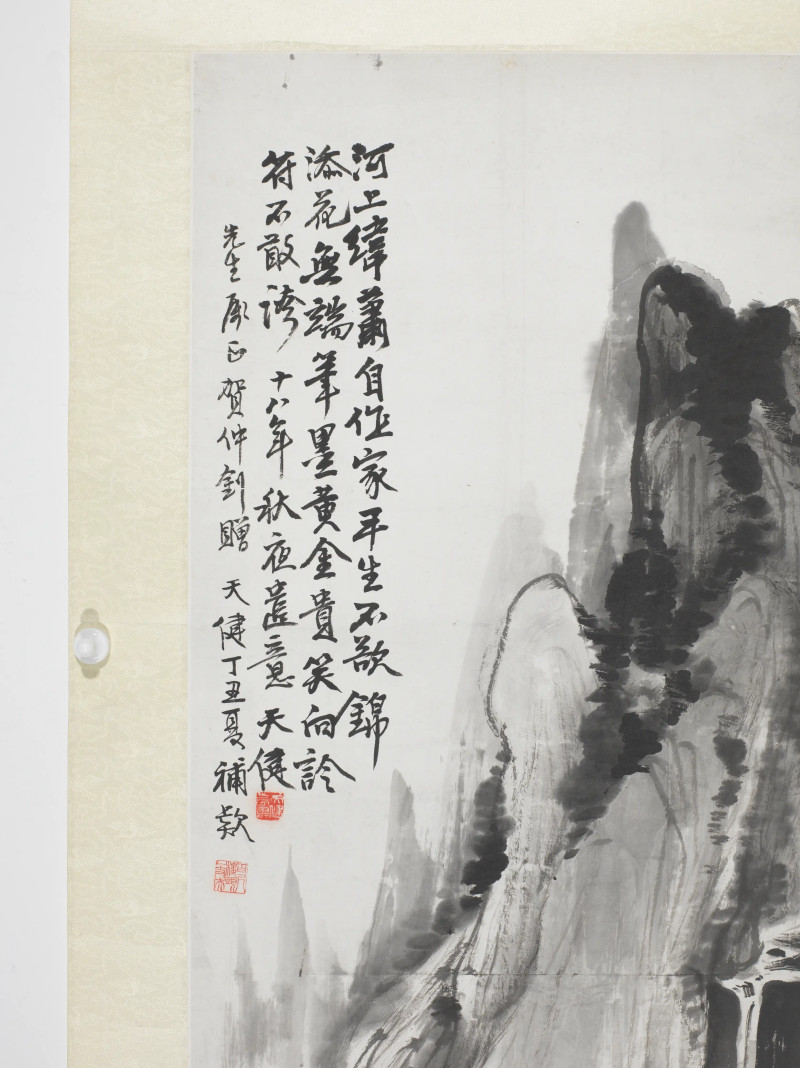 河上緯蕭自作家平生不欲錦
添花無端筆墨黃金貴笑向詅
符不敢誇 十八年秋夜遣意 天健
先生正 賀仲釗贈 天健丁丑夏補款